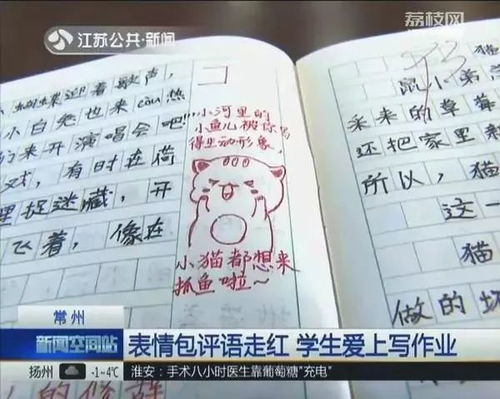 江苏公共·新闻
荔枝网
蝴蝶迎着歌声,
小白兔也来cou热
们来开演唱会吧!"
戏,有时在荷
里捉迷藏,开
飞着,像在
小河里的
小鱼儿被你写
得生动形象。
小猫都想来
抓鱼啦~
鼠小弟
采来的草莓
还把家里
所以,猫
这一
猫
做的
常州
新闻空间站
表情包评语走红 学生爱上写作业
扬州 -1~4℃
淮安:手术八小时医生靠葡萄糖"充电"